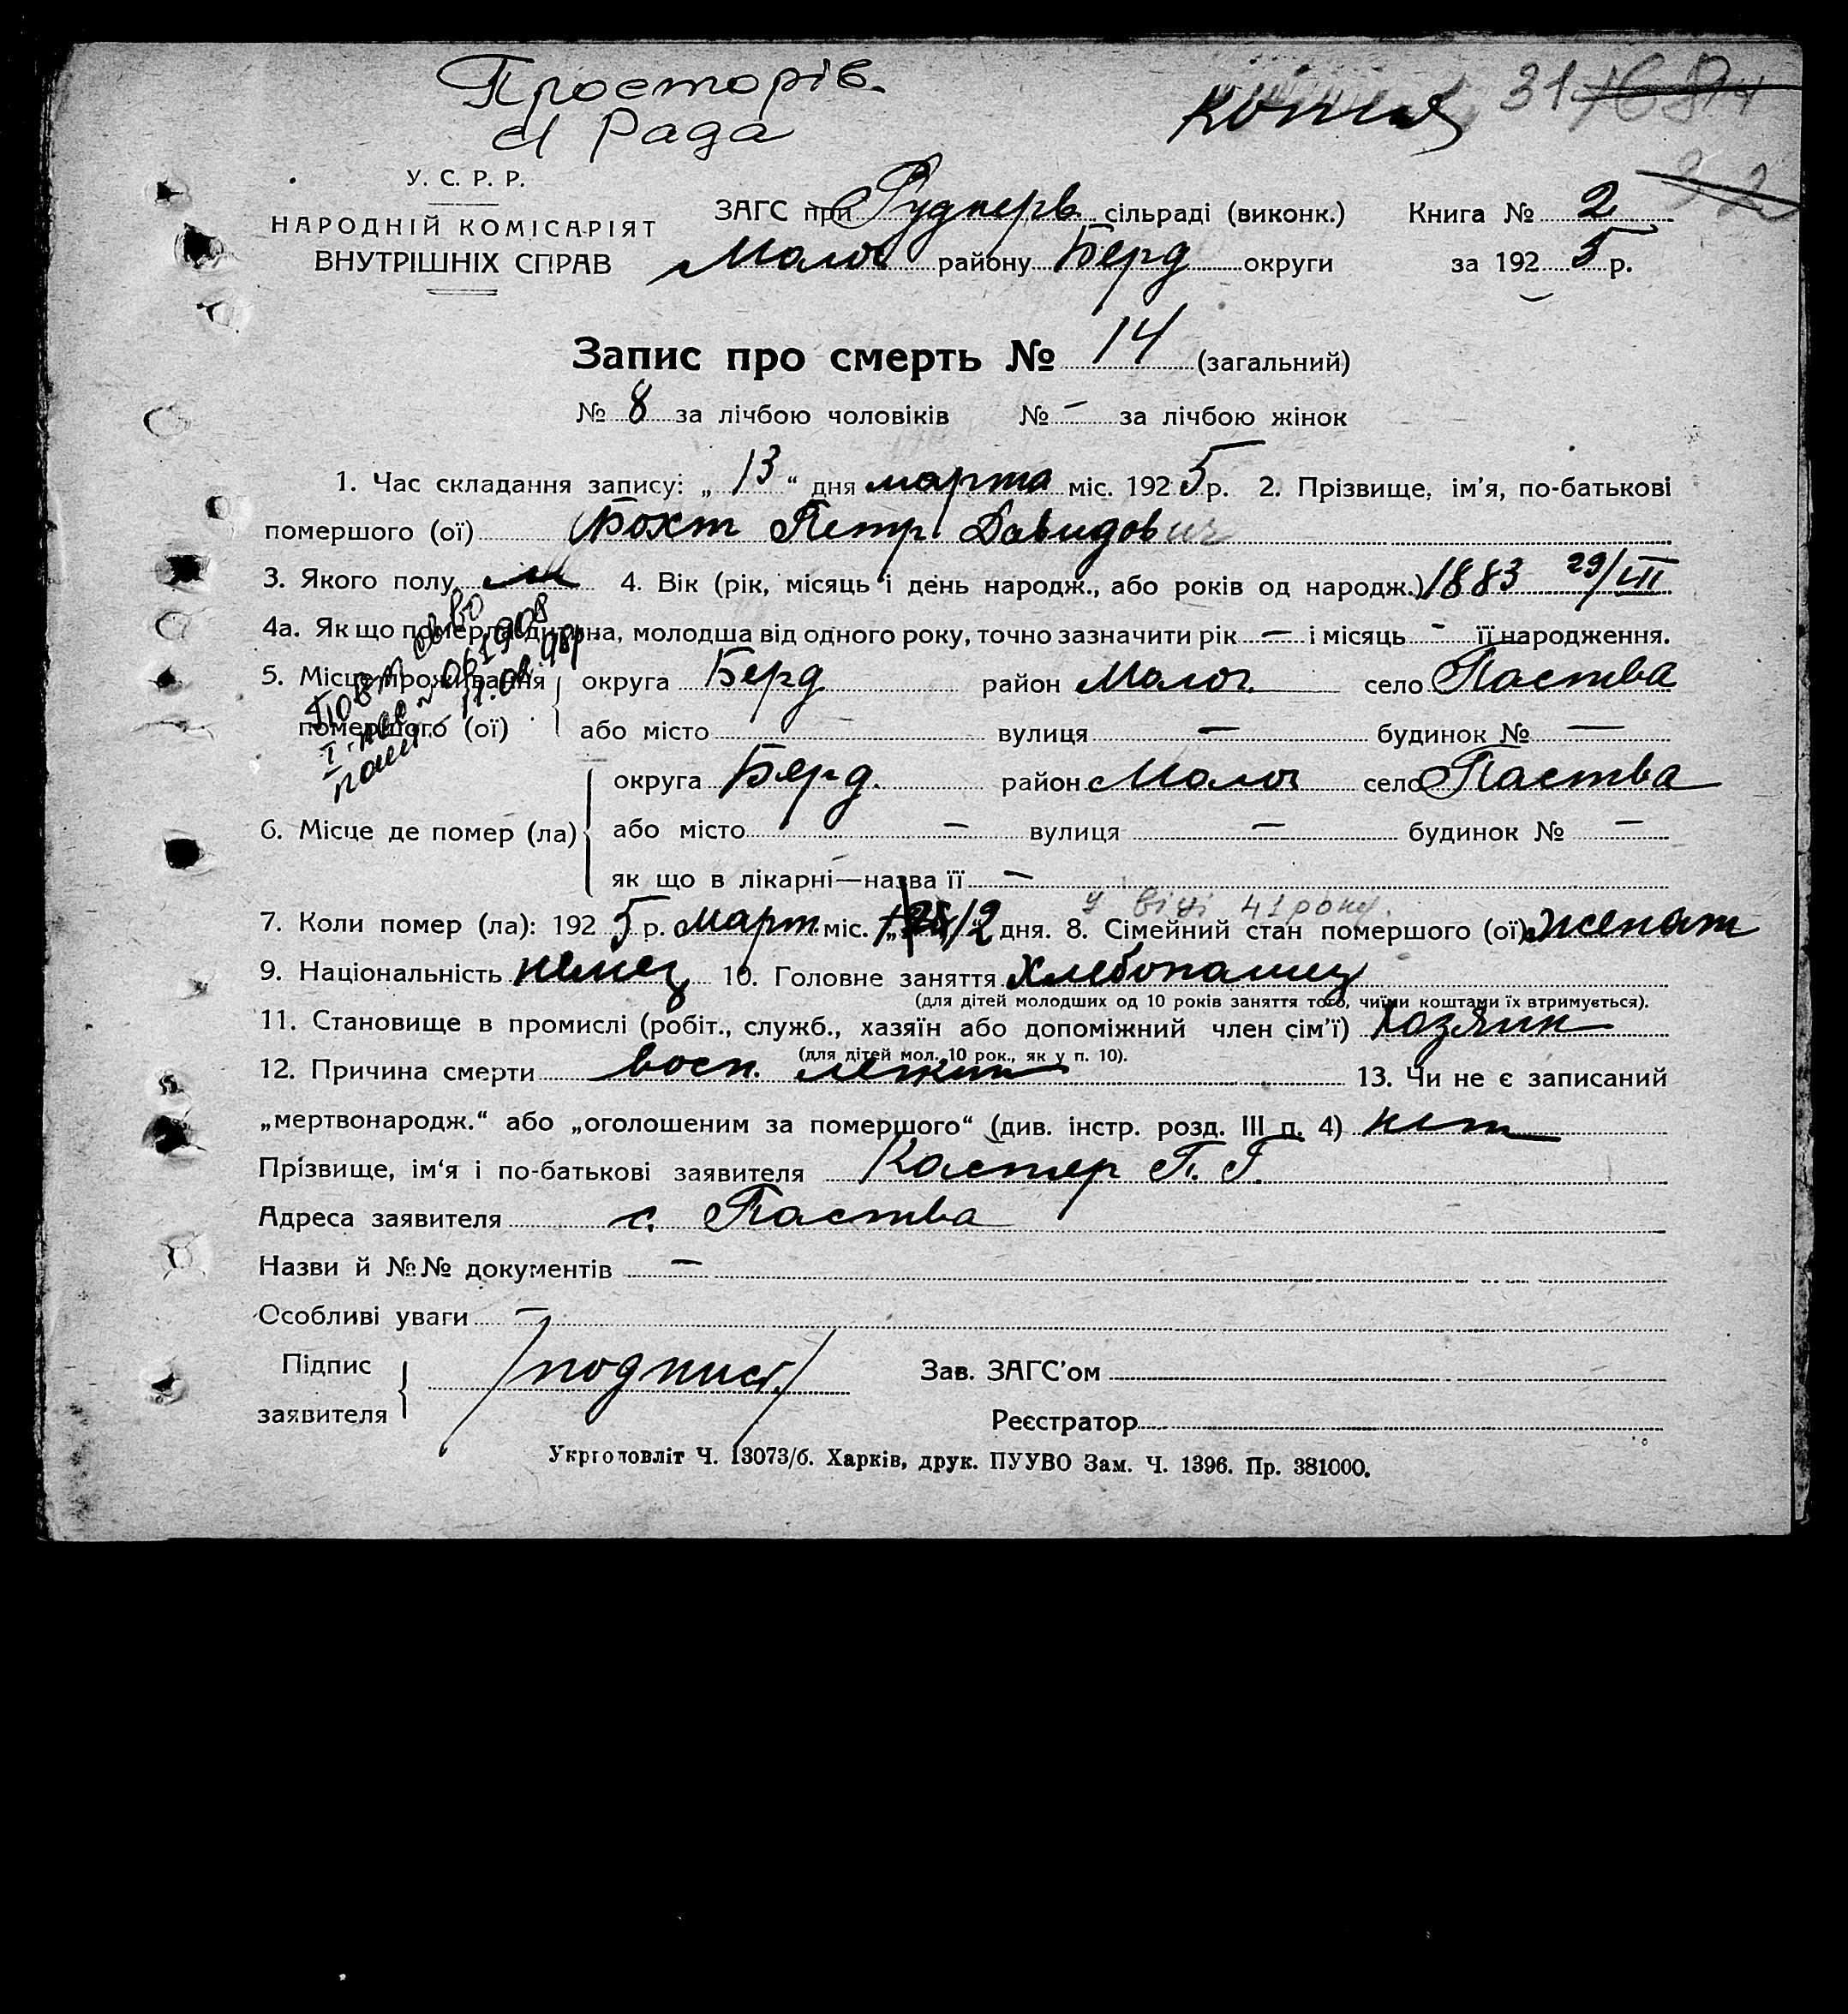 Просторів.
с/Рада
Копия 31
У. С. Р. Р.
НАРОДНІЙ КОМІСАРІЯТ
ВНУТРІШНІХ СПРАВ
ЗАГС при Рудперв. сільраді (виконк.) Книга № 2
Молоч району Берд округи за 192 5 р.
Запис про смерть № 14 (загальний)
№ 8 за лічбою чоловіків № – за лічбою жінок
1. Час складання запису: „ 13 “ дня марта міс. 192 5 р. 2. Прізвище, ім’я, по-батькові
помершого (ої) Вохт Петр Давидович
3. Якого полу м 4. Вік (рік, місяць і день народж., або років од народж.) 1883 29/VIII
4а. Як що померла дитина, молодша від одного року, точно зазначити рік — і місяць - її народження.
5. Місце проживання помершого (ої) округа Берд район Молоч. село Паства
або місто вулиця — будинок № —
6. Місце де помер (ла) округа Берд. район Молоч село Паства
або місто – вулиця – будинок № –
як що в лікарні—назва її –
у віці 41 року.
7. Коли помер (ла): 192 5 р. март. міс. „12“ дня. 8. Сімейний стан помершого (ої) женат
9. Національність немец 10. Головне заняття хлебопашец
(для дітей молодших од 10 років заняття того, чиїми коштами їх втримується).
11. Становище в промислі (робіт., служб., хазяїн або допоміжний член сім’ї) хозяин
(для дітей мол. 10 рок., як у п. 10).
12. Причина смерти восп. легких 13. Чи не є записаний
„мертвонародж.“ або „оголошеним за помершого“ (див. інстр. розд. III п. 4) нет
Прізвище, ім‘я і по-батькові заявителя Костер П. Г.
Адреса заявителя с. Паства
Назви й №№ документів —
Особливі уваги —
Підпис заявителя /подпись/ Зав. ЗАГС’ом
Реєстратор
Укрголовліт Ч. 13073/б. Харків, друк. ПУУВО Зам. Ч. 1396. Пр. 381000.